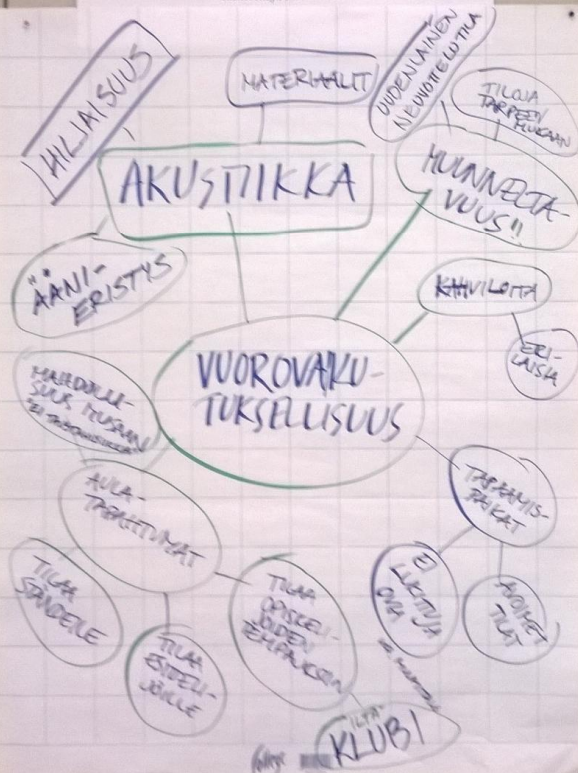 HILJAISUUS
MATERIAALIT
UUDENLAINEN
NEUVOTTELUTILA
TILOJA
TARPEEN
MUKAAN
AKUSTIIKKA
MUUNNELTA-
VUUS!!
ÄÄNI-
ERISTYS
KAHVILOITA
ERI-
LAISIA
VUOROVAIKU-
TUKSELLISUUS
MAHDOLLI-
SUUS
AULA-
TAPAHTUMAT
TAPAAMIS-
PAIKAT
TILAA
STÄNDEILLE
TILAA
ESITTELI-
JÖILLE
TILAA
OPISKELI-
JOIDEN
EI
LUKITTUJA
OVIA
AVOIMET
TILAT
ILTA
KLUBI